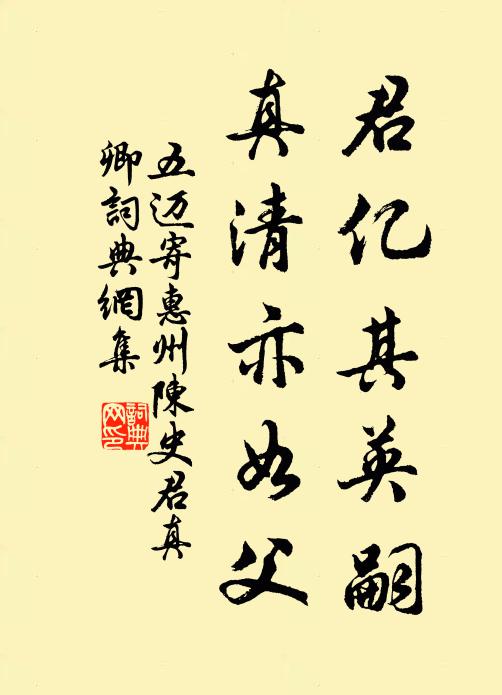 君亿其英嗣
真清亦如父
五迈寄惠州陳史君真
卿詞典網集
詞典
网印